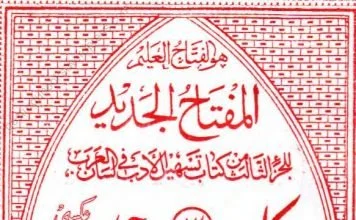 هو الفتاح العليم
المفتاح الجديد
للجزء الثالث من كتاب تسهيل الأدب في لسان العرب